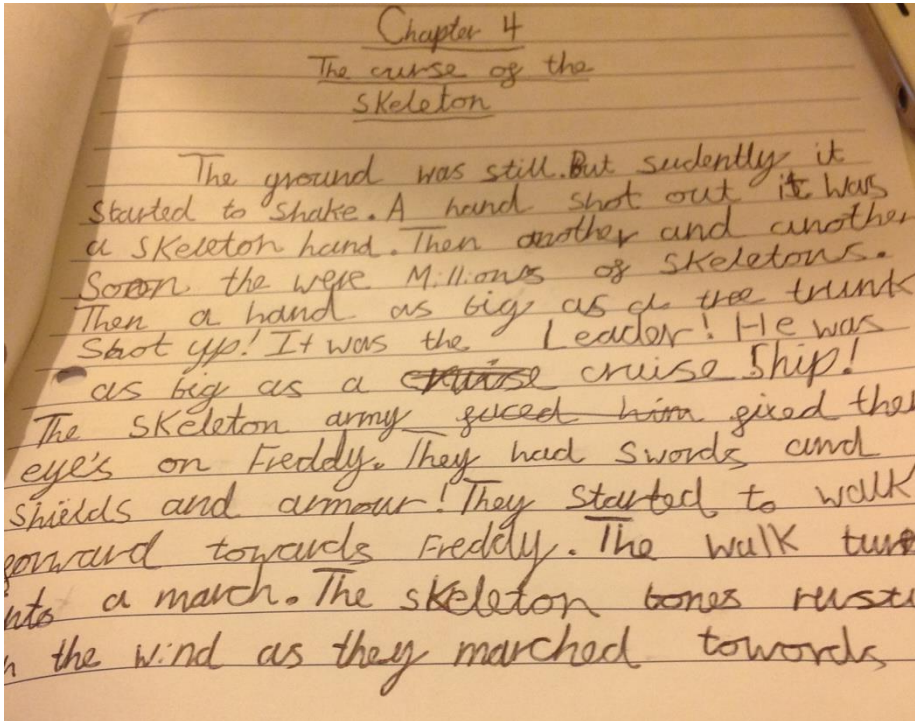 Chapter 4
The curse of the
Skeleton
The ground was still. But sudently it
started to shake. A hand shot out it was
a skeleton hand. Then another and another
Soon the were Millions of skeletons.
Then a hand as big as a tree trunk
Shot up! It was the Leader! He was
as big as a cruise cruise Ship!
The skeleton army faced him fixed ther
eye's on Freddy. They had swords and
shields and armour! They started to walk
forward towards Freddy. The walk turne
nto a march. The skeleton bones rustl
n the wind as they marched towords